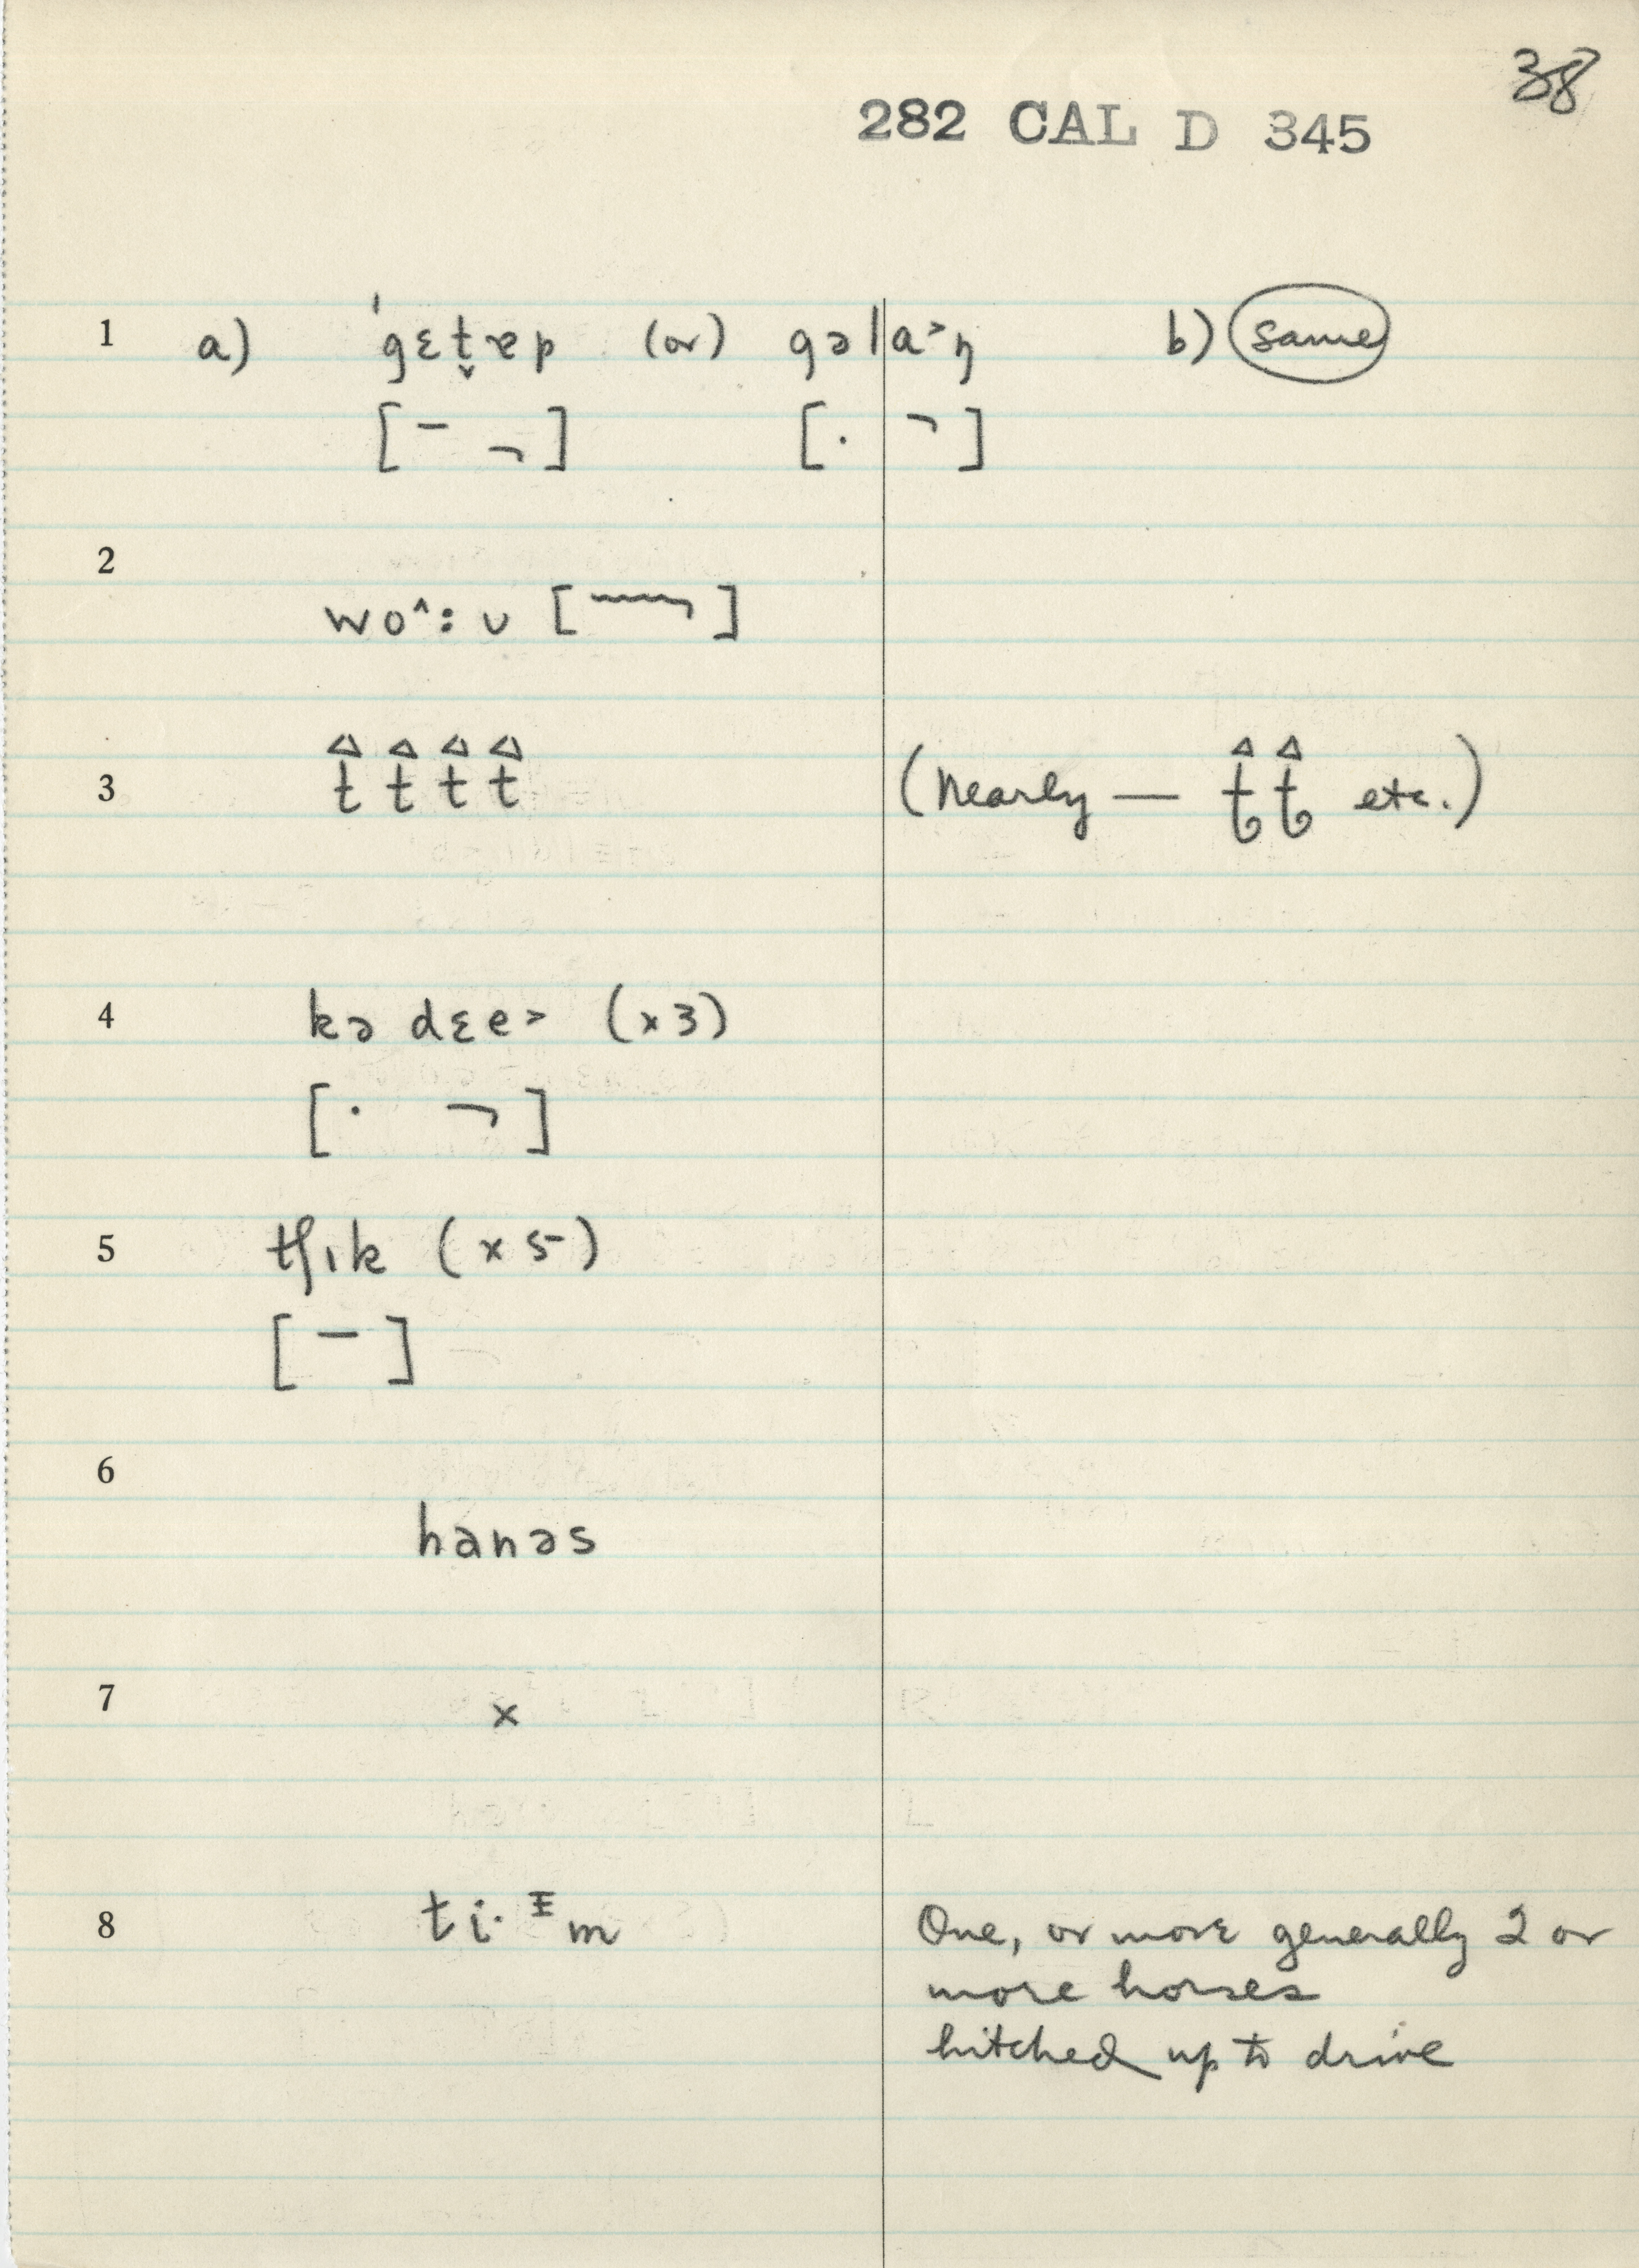 38
282 CAL D 345
1 a) ˈgɛt̬ɐp (or) gəla˃ŋ b) same
[¯ ¬] [· ¬]
2
wo^:ʊ [ ]
3 t t t t (Nearly — t t etc.)
4 kə dɛe˃ (x3)
[· ¬]
5 tʃɪk (x5)
[¯]
6
hanəs
7 x
8 ti·ɪm One, or more generally 2 or
more horses
hitched up to drive